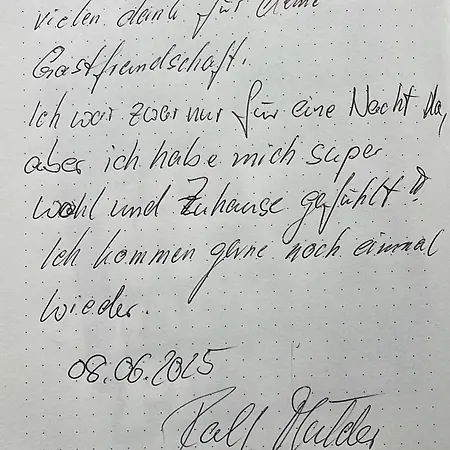 vielen dank für deine
Gastfreundschaft.
Ich war zwar nur für eine Nacht da,
aber ich habe mich super
wohl und Zuhause gefühlt!!
Ich kommen gerne noch einmal
wieder.
08.06.2025
Ralf